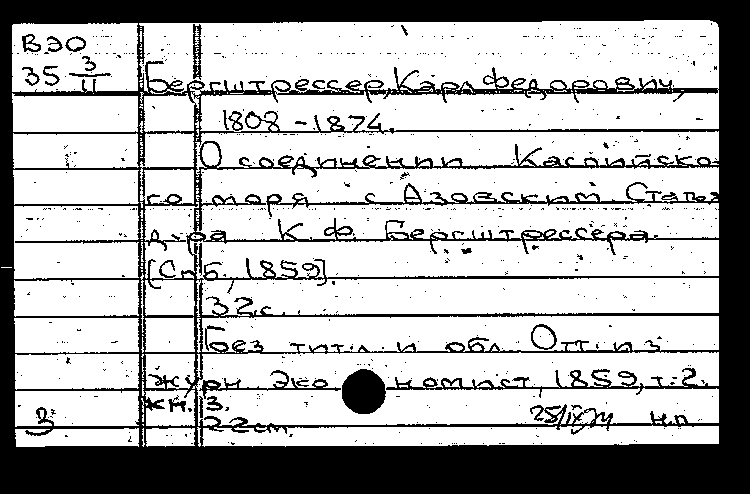 ВЭО
35 3/11
Бергштрессер, Карл Федорович,
1808 - 1874.
О соединении Каспийско-
го моря с Азовским. Статья
д-ра К. Ф. Бергштрессера.
[Спб., 1859].
32 с.
Без тит. л. и обл. Отт. из
журн. Экономист, 1859, т. 2.
кн. 3.
22 см.
3
н.п.